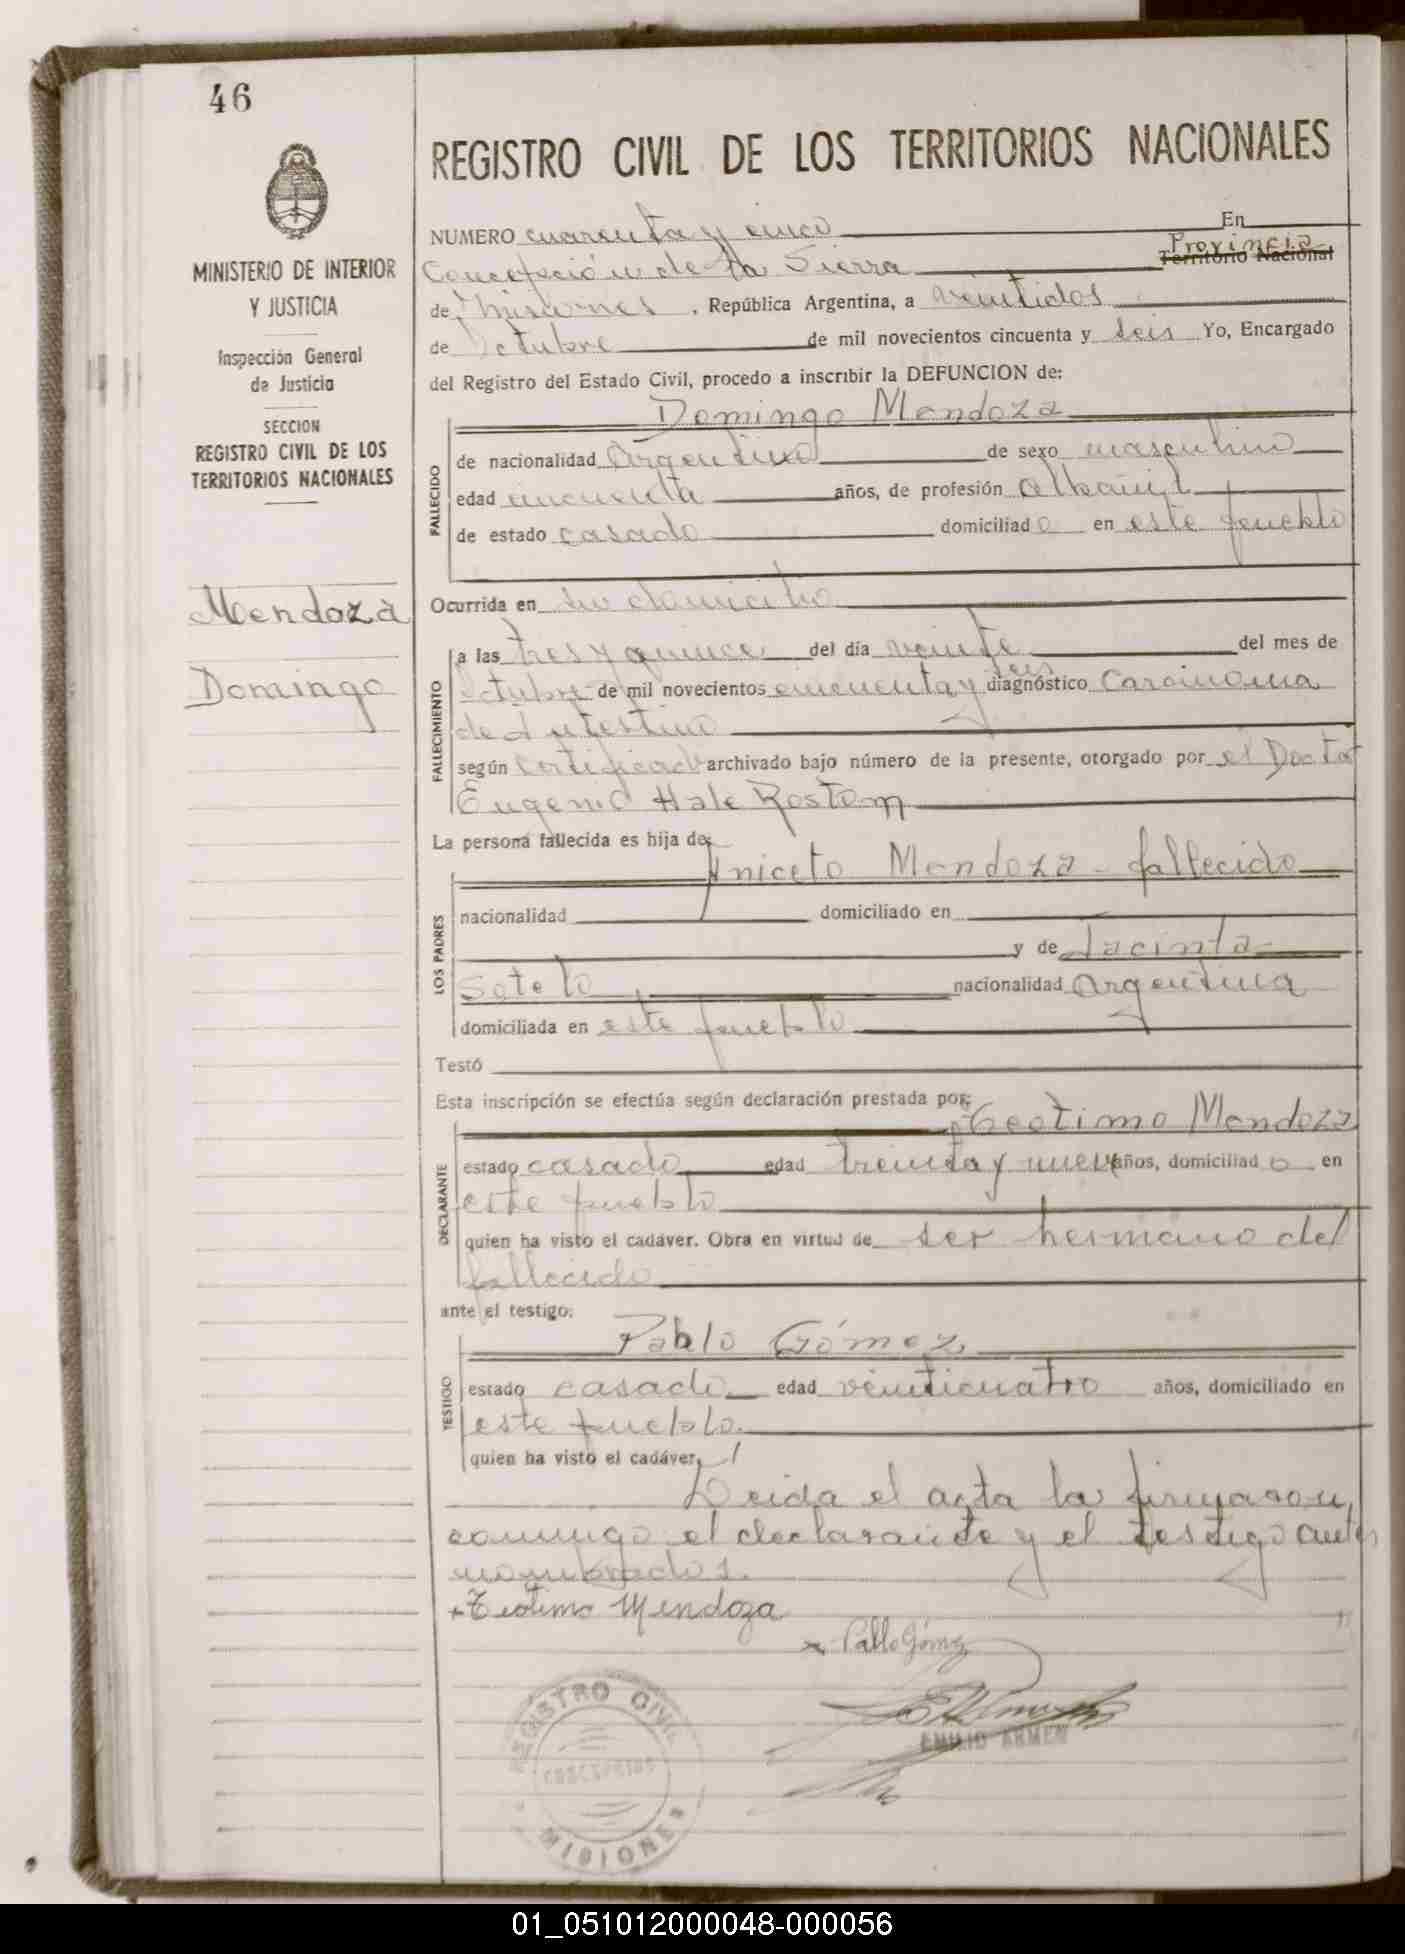 46
MINISTERIO DE INTERIOR
Y JUSTICIA
Inspección General
de Justicia
SECCION
REGISTRO CIVIL DE LOS
TERRITORIOS NACIONALES
Mendoza
Domingo
REGISTRO CIVIL DE LOS TERRITORIOS NACIONALES
NUMERO cuarenta y cinco En
Concepción de la Sierra Provincia Territorio Nacional
de Misiones, República Argentina, a veintidos
de Octubre de mil novecientos cincuenta y seis Yo, Encargado
del Registro del Estado Civil, procedo a inscribir la DEFUNCION de:
Domingo Mendoza
FALLECIDO
de nacionalidad Argentino de sexo masculino
edad cincuenta años, de profesión albañil
de estado casado domiciliad o en este pueblo
Ocurrida en su domicilio
FALLECIMIENTO
a las tres y quince del día veinte del mes de
Octubre de mil novecientos cincuenta y seis diagnóstico Carcinoma
de Intestino
según certificado archivado bajo número de la presente, otorgado por el Doctor
Eugenio Hale Rostem
La persona fallecida es hija de:
Aniceto Mendoza - fallecido
LOS PADRES
nacionalidad domiciliado en
y de Jacinta
Sotelo, nacionalidad Argentina
domiciliada en este pueblo
Testó
Esta inscripción se efectúa según declaración prestada por:
Teotimo Mendoza
DECLARANTE
estado casado edad treinta y nueve años, domiciliad o en
este pueblo
quien ha visto el cadáver. Obra en virtud de ser hermano del
fallecido
ante el testigo:
Pablo Gómez
TESTIGO
estado casado edad veinticuatro años, domiciliado en
este pueblo.
quien ha visto el cadáver.
Leida el acta la firmaron,
conmigo el declarante y el testigo antes
nombrados.
+ Teotimo Mendoza
x Pablo Gómez
EMILIO ARMEN
REGISTRO CIVIL
CONCEPCION
MISIONES
01_051012000048-000056